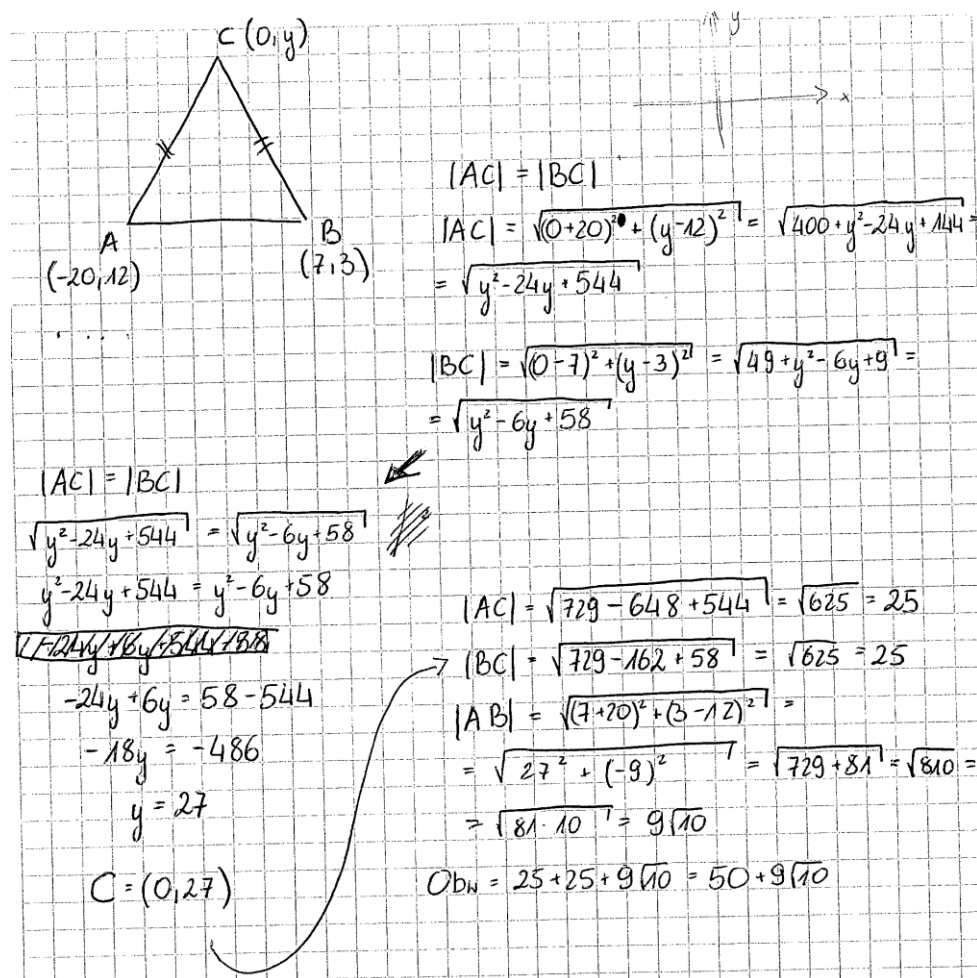 C (0,y)
A
(-20,12)
B
(7,3)
. . . .
y
x
|AC| = |BC|
|AC| = √((0+20)² + (y-12)²) = √(400+y²-24y+144) =
= √(y²-24y+544)
|BC| = √((0-7)² + (y-3)²) = √(49+y²-6y+9) =
= √(y²-6y+58)
|AC| = |BC|
√(y²-24y+544) = √(y²-6y+58)
y²-24y+544 = y²-6y+58
-24y+6y = 58-544
-18y = -486
y = 27
C = (0,27)
|AC| = √(729-648+544) = √625 = 25
|BC| = √(729-162+58) = √625 = 25
|AB| = √((7+20)² + (3-12)²) =
= √(27² + (-9)²) = √(729+81) = √810 =
= √(81·10) = 9√10
Obw = 25+25+9√10 = 50+9√10